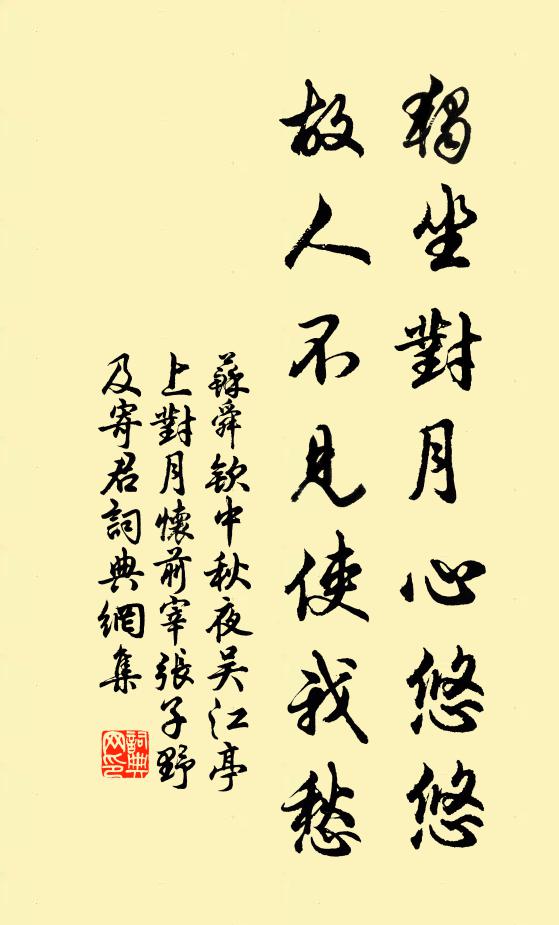 獨坐對月心悠悠
故人不見使我愁
蘇舜欽中秋夜吴江亭
上對月懷前宰張子野
及寄君詞典網集
詞典
网印